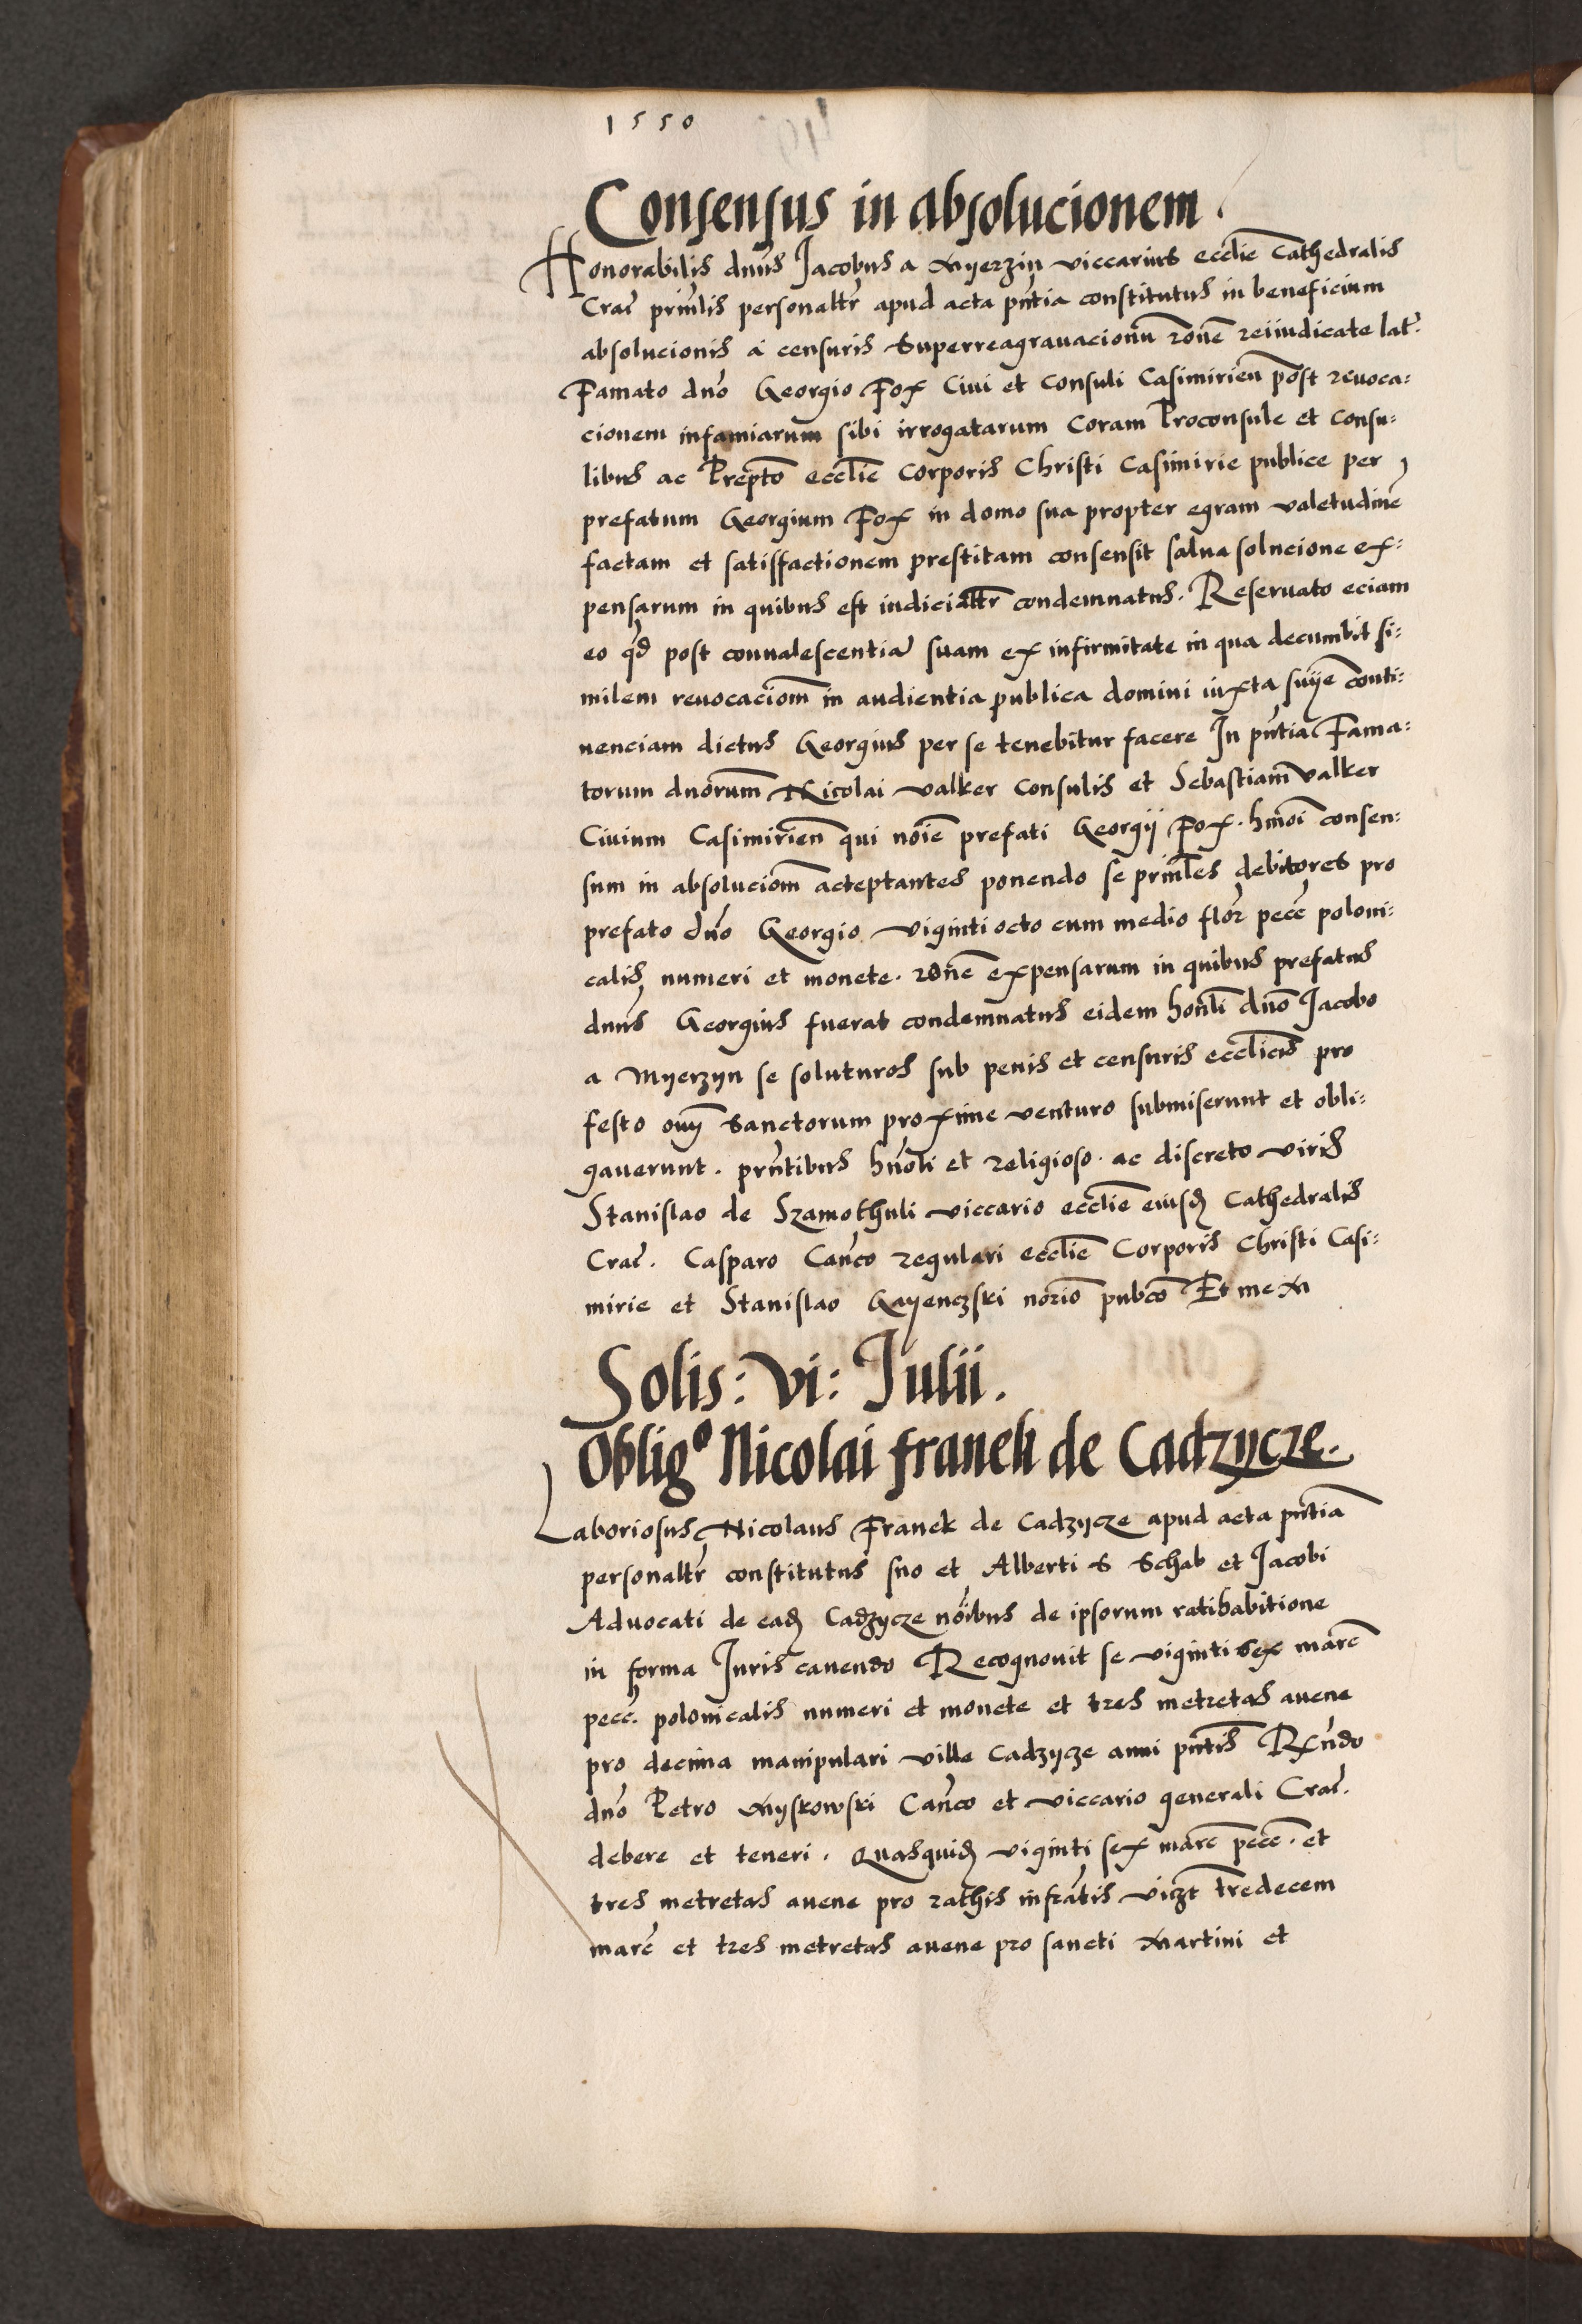 1550
Consensus in absolucionem.
Honorabilis dnus Jacobus a Myerzin viccarius ecclie Cathedralis
Crac prinlis personaltr apud acta pntia constitutus in beneficium
absolucionis a censuris superreagravacionu rone reiiudicate lat.
Famato dno Georgio Fox Civi et consuli Casimirien post revoca=
cionem infamiarum sibi irrogatarum coram Proconsule et consu=
libus ac Prepto ecclie corporis Christi Casimirie publice per
prefatum Georgium Fox in domo sua propter egram valetudine
factam et satisfactionem prestitam consensit salva solucione ex=
pensarum in quibus est iudicialtr condemnatus. Reservato eciam
eo qd post convalescentia suam ex infirmitate in qua decumbit si=
milem revocaciom in audientia publica domini iuxta sui conti=
nenciam dictus Georgius per se tenebitur facere In pntia Fama=
torum dnorum Nicolai Valker consulis et Sebastiani Valker
Civium Casimirien qui noie prefati Georgii Fox. hmoi consen=
sum in absoluciom acceptantes ponendo se prinles debitores pro
prefato dno Georgio viginti octo cum medio flor pecc poloni=
calis numeri et monete. rone expensarum in quibus prefatus
dnus Georgius fuerat condemnatus eidem honli dno Jacobo
a Myerzyn se soluturos sub penis et censuris ecclicis pro
festo oim Sanctorum proxime venturo submiserunt et obli=
gaverunt. prntibus hnoli et religioso. ac discreto viris
Stanislao de Szamothuli viccario ecclie eiusd Cathedralis
Crac. Casparo Canco regulari ecclie Corporis Christi Casi=
mirie et Stanislao Gayenczski norio pubco Et me N
Solis: vi: Julii.
Obligo Nicolai franek de Cadzycze.
Laboriosus Nicolaus Franek de Cadzycze apud acta pntia
personaltr constitutus suo et Alberti S Schab et Jacobi
Advocati de ead Cadzycze noibus de ipsorum ratihabitione
in forma Juris cavendo Recognovit se viginti sex marc
pecc. polonicalis numeri et monete et tres metretas avene
pro decima manipulari ville Cadzycze anni pntis Rndo
dno Petro Myskowski Canco et viccario generali Crac.
debere et teneri. Quasquid viginti sex marc pecc. et
tres metretas avene pro rathis infratis viczt tredecem
marc et tres metretas avene pro sancti Martini et